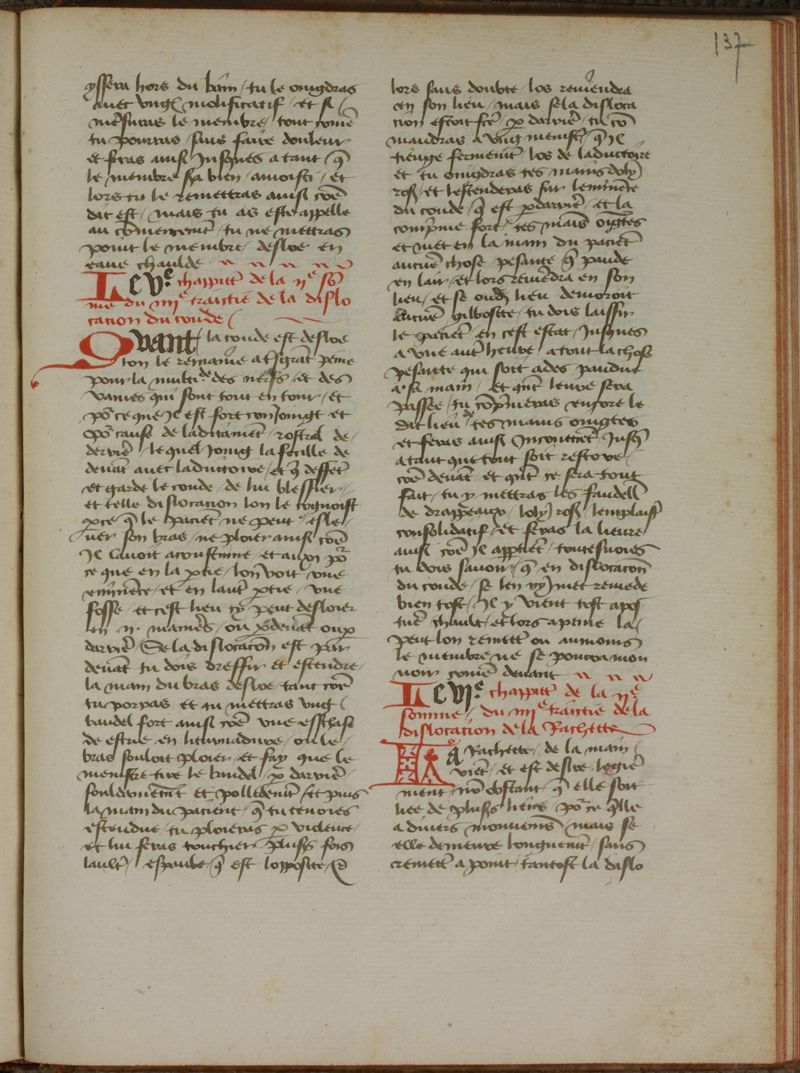 137
yssera hors du bain / tu le oingdras
avec ung molificatif / et se
mesureras le membre / tout comē
tu pourras / sans faire douleur
et feras ainsi jusques a tant q̄
le membre sa bien amoisti / et
lors tu le remettras ainsi cōe
dit est / mais tu as este appelle
au cōmencement tu ne mettras
point le membre desloe en
eaue chaulde
Le Ve chappitre de la IIe sō
me du IIIe traictie de la dislo
cacion du coude
Quant la coude est desloe
lon le remaine a grāt peine
pour la multi.de des nerfs et des
vaines qui sont tout en tour / et
po' ce que il est fort conioingt et
po' cause de laditament / rostral de
derriē / lequel joing la fucille de
devāt avec laductoire / et
et garde le coude de lui blessier
et telle dislocacion lon le cognoist
p̄ce q̄ le paciēt ne peut esle
ver son bras / ne ployer ainsi cōe
Il lavoit acoustume / et aussi po'
ce que en la p̄tie lon voit une
eminēce / et en laut' p̄tie / une
fosse / et cest lieu cy peut desloier
en II manieres / ou p̄ devāt ou p̄
darriē / Se la dislocacōn est par
devāt tu dois dressir et estendre
la main du bras desloe / tant cōe
tu porpas et tu mettras ung
bandel fort ainsi cōe une
de estrie en ou le
bras souloit ployer / et fay que le
menistre tire le bindel p̄ darriē
souldainemēt et et puis
la main du pacient q̄ tu tenoies
estendue / tu ploieras p̄ violence
et lui feras touchier plus's fois
lault' espaule q̄ est lopposite / Et
lors sans doubte / los reviendra
en son lieu / mais se la disloca
cion estoit fcē p̄ darriē / tu cō
manderas a ung menistre q̄ il
tiengne fermemēt los de laductoire
et tu oingdras tes mains doly
ros / et lestenderas sur leminēce
du coude q̄ est p̄ darriē / et la
comprime fort / tes mains oigtes
et met en la main du paciēt
aucune chose pesante q̄ pende
en lair / et lors reviēdra en son
lieu / et se oudit lieu demoroit
aucune gibbosite / tu dois laissir
le paciēt en cest estat / jusques
a une aut' heure / a tout la chose
pesante qui soit ades pendue
a sa main / et qāt leure sera
passee / tu cōprimeras encore le
dit lieu de tes mains oingtes
et feras ainsi jusq̄
a tant que tout soit restore
cōe devāt / et qāt ce sera tout
fait / tu y mettras les faudell
de drappeaux / loly ros / lemplaist
consolidatif / et feras la lieure
ainsi cōe il app̄tiēt / toutesvoies
tu dois savoir q̄ en dislocacōn
du coude / se len ny met remede
bien tost / Il y vient tost apos
tume chault / et lors a peine la
peut lon remett' ou aumoins
le membre ne se pourra mou
voir comē devant
Le VIe chappitre de la IIe
somme / du IIIe traictie de la
dislocacion de la Rachette
La Rachette de la main
viēt / et est desloee legiē
ment / nō obstant q̄ elle soit
liee de plus's liens / po' ce q̄lle
a divers mouvemēs / mais se
elle demeure longuemēt / sans
remett' a point / tantost la dislo